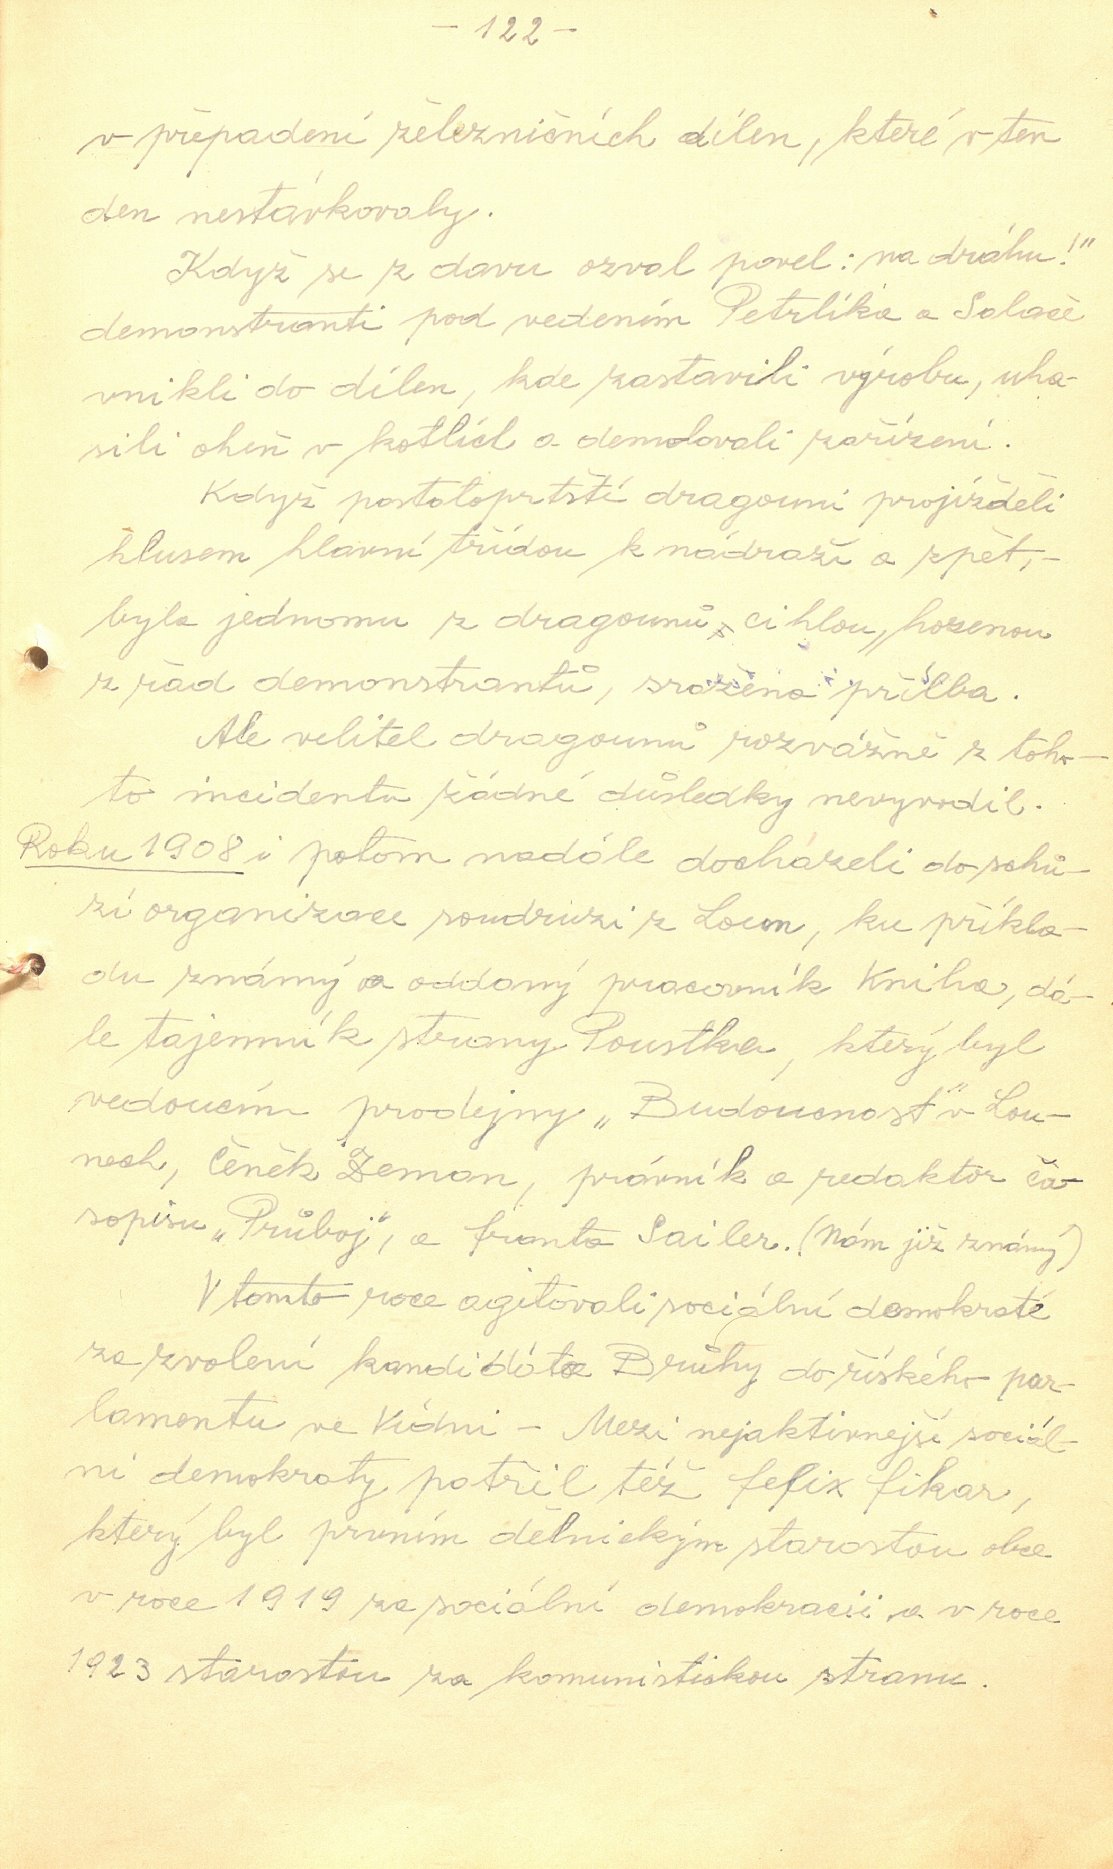 - 122 -
v přepadení železničních dílen, které v ten
den nestávkovaly.
Když se z davu ozval povel: na dráhu!"
demonstranti pod vedením Petrlíka a Salače
vnikli do dílen, kde zastavili výrobu, uha-
sili oheň v kotlích a demolovali zařízení.
Když postoloprtští dragouni projížděli
klusem hlavní třídou k nádraží a zpět,-
byla jednomu z dragounů, cihlou, hozenou
z řad demonstrantů, sražena přílba.
Ale velitel dragounů rozvážně z toho-
to incidentu žádné důsledky nevyvodil.
Roku 1908 i potom nadále docházeli do schů-
zí organizace soudruzi z Loun, ku příkla-
du známý a oddaný pracovník Kniha, dá-
le tajemník strany Poustka, který byl
vedoucím prodejny „Budoucnost" v Lou-
nech, Čeněk Zeman, právník a redaktor ča-
sopisu „Průboj", a franta Sailer. (Nám již známý)
V tomto roce agitovali sociální demokraté
za zvolení kandidáta Brůhy do říského par-
lamentu ve Vídni - Mezi nejaktivnejší sociál-
ní demokraty patřil též felix fikar,
který byl prvním dělnickým starostou obce
v roce 1919 za sociální demokracii a v roce
1923 starostou za komunistickou stranu.